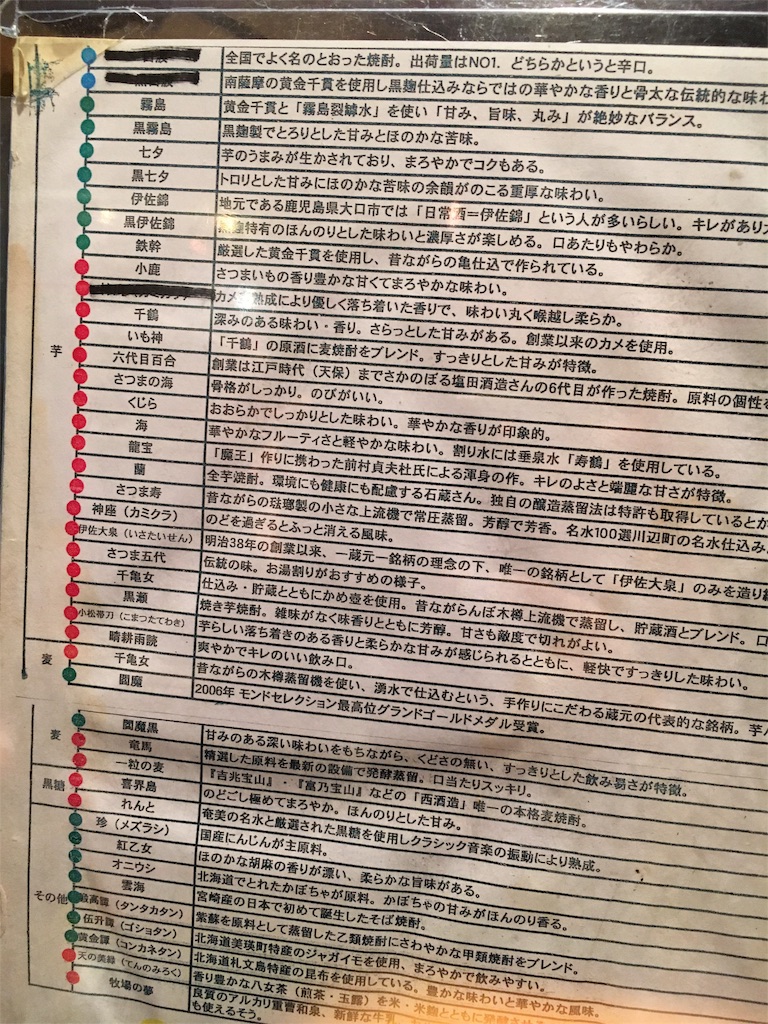 全国でよく名のとおった焼酎。出荷量はNO1. どちらかというと辛口。
南薩摩の黄金千貫を使用し黒麹仕込みならではの華やかな香りと骨太な伝統的な味わ
芋
霧島 黄金千貫と「霧島裂罅水」を使い「甘み、旨味、丸み」が絶妙なバランス。
黒霧島 黒麹製でとろりとした甘みとほのかな苦味。
七夕 芋のうまみが生かされており、まろやかでコクもある。
黒七夕 トロリとした甘みにほのかな苦味の余韻がのこる重厚な味わい。
伊佐錦 地元である鹿児島県大口市では「日常酒=伊佐錦」という人が多いらしい。キレがあり
黒伊佐錦 特有のほんのりとした味わいと濃厚さが楽しめる。口あたりもやわらか。
鉄幹 厳選した黄金千貫を使用し、昔ながらの亀仕込で作られている。
小鹿 さつまいもの香り豊かな甘くてまろやかな味わい。
カメ 熟成により優しく落ち着いた香りで、味わい丸く喉越し柔らか。
千鶴 深みのある味わい・香り。さらっとした甘みがある。創業以来のカメを使用。
いも神 「千鶴」の原酒に麦焼酎をブレンド。すっきりとした甘みが特徴。
六代目百合 創業は江戸時代（天保）までさかのぼる塩田酒造さんの6代目が作った焼酎。原料の個性を
さつまの海 骨格がしっかり。のびがいい。
くじら おおらかでしっかりとした味わい。華やかな香りが印象的。
海 華やかなフルーティさと軽やかな味わい。割り水には垂泉水「寿鶴」を使用している。
龍宝 「魔王」作りに携わった前村貞夫杜氏による渾身の作。キレのよさと端麗な甘さが特徴。
蘭 全芋焼酎。環境にも健康にも配慮する石蔵さん。独自の醸造蒸留法は特許も取得しているとか
さつま寿 昔ながらの琺瑯製の小さな上流機で常圧蒸留。芳醇で芳香。名水100選川辺町の名水仕込み
神座（カミクラ） のどを過ぎるとふっと消える風味。
伊佐大泉（いさたいせん） 明治38年の創業以来、一蔵元一銘柄の理念の下、唯一の銘柄として「伊佐大泉」のみを造り
さつま五代 伝統の味。お湯割りがおすすめの様子。
千亀女 仕込み・貯蔵ともにかめ壺を使用。昔ながらんぼ木樽上流機で蒸留し、貯蔵酒とブレンド。口
黒瀬 焼き芋焼酎。雑味がなく味香りともに芳醇。甘さも敵度で切れがよい。
小松帯刀（こまつたてわき） 芋らしい落ち着きのある香りと柔らかな甘みが感じられるとともに、軽快ですっきりした味わい。
晴耕雨読 爽やかでキレのいい飲み口。
麦
千亀女 昔ながらの木樽蒸留機を使い、湧水で仕込むという、手作りにこだわる蔵元の代表的な銘柄。芋
閻魔 2006年 モンドセレクション最高位グランドゴールドメダル受賞。
麦
閻魔黒 甘みのある深い味わいをもちながら、くどさの無い、すっきりとした飲み易さが特徴。
竜馬 精選した原料を最新の設備で発酵蒸留。口当たりスッキリ。
一粒の麦 『吉兆宝山』・『富乃宝山』などの「西酒造」唯一の本格麦焼酎。
黒糖
喜界島 のどごし極めてまろやか。ほんのりとした甘み。
れんと 奄美の名水と厳選された黒糖を使用しクラシック音楽の振動により熟成。
その他
珍（メズラシ） 国産にんじんが主原料。
紅乙女 ほのかな胡麻の香りが漂い、柔らかな旨味がある。
オニウシ 北海道でとれたかぼちゃが原料。かぼちゃの甘みがほんのり香る。
雲海 宮崎産の日本で初めて誕生したそば焼酎。
高譚（タンタカタン） 紫蘇を原料として蒸留した乙類焼酎にさわやかな甲類焼酎をブレンド。
伍升譚（ゴショタン） 北海道美瑛町特産のジャガイモを使用、まろやかで飲みやすい。
黄金譚（コンカネタン） 北海道礼文島特産の昆布を使用している。豊かな味わいと華やかな風味。
天の美緑（てんのみろく） 香り豊かな八女茶（煎茶・玉露）を米・米麹とともに発酵させ
牧場の夢 良質のアルカリ重曹和泉、新鮮な牛乳
も使えるそう。